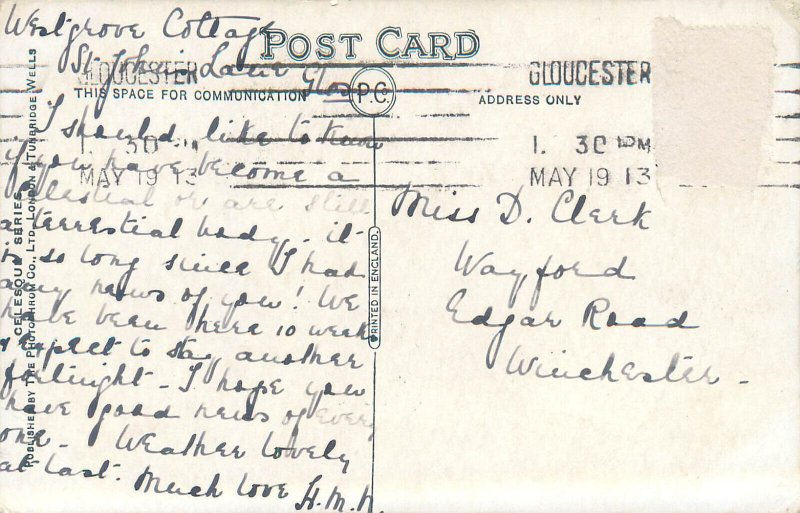 Westgrove Cottage
St. John's Lane Glos
POST CARD
GLOUCESTER
GLOUCESTER
THIS SPACE FOR COMMUNICATION
P.C.
ADDRESS ONLY
1. 30
MAY 19 13
1. 30 PM
MAY 19 13
I should like to know
if you have become a
celestial or are still
a terrestial body - it
is so long since I had
any news of you! We
have been here 10 weeks
& expect to stay another
fortnight - I hope you
have good news of every
one - Weather lovely
at last.
Much love H.M.N.
Miss D. Clerk
Wayford
Edgar Road
Winchester -
PRINTED IN ENGLAND.
CELESQUE SERIES
PUBLISHED BY THE PHOTOCHROM CO., LTD., LONDON & TUNBRIDGE WELLS